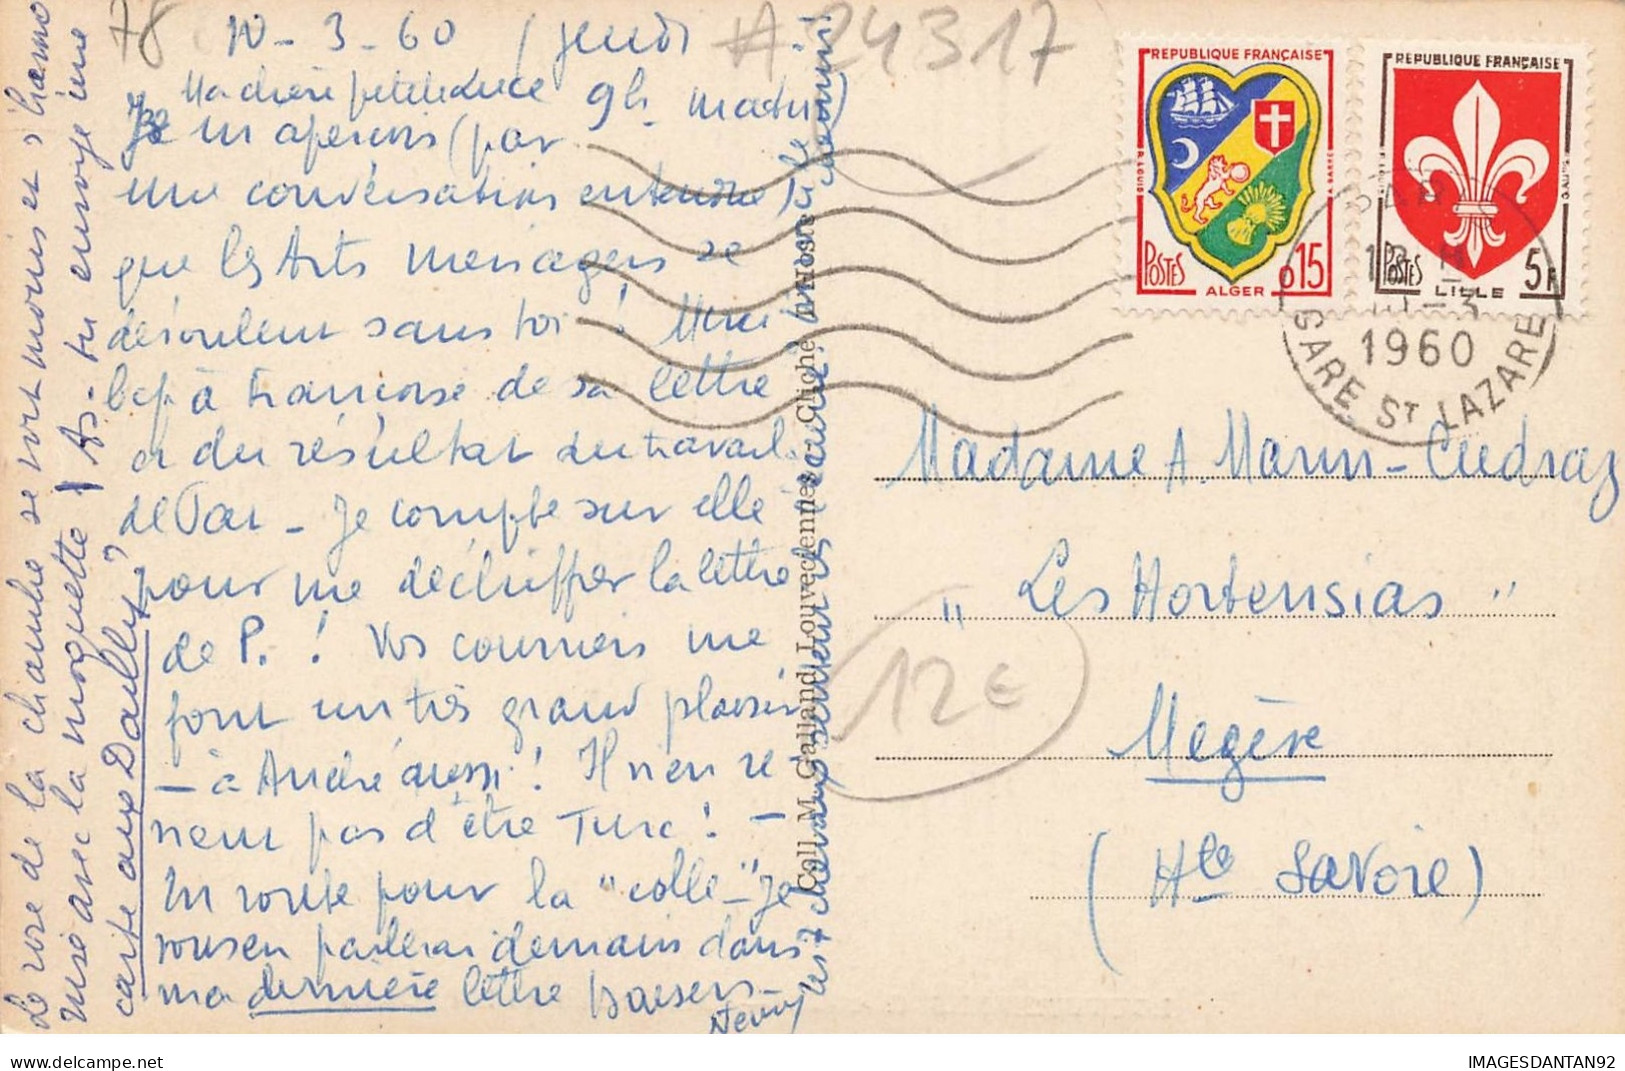 78
10-3-60 (jeudi
A 24317
Ma chère petite Luce 9h. matin)
Je m'aperçois (par
une conversation entendue)
que les Arts Menagers se
déroulent sans toi! Merci
bcp à Françoise de sa lettre
et du résultat du travail
de Par - Je compte sur elle
pour me déchiffrer la lettre
de P.! Vos courriers me
font un très grand plaisir
- à André aussi! Il n'en re
vient pas d'être Turc! -
En route pour la "colle" - Je
vous en parlerai demain dans
ma dernière lettre Baisers
Le rose de la chambre se voit moins et s'harmo
nise avec la moquette! As-tu envoyé une
carte aux Dailly?
les chevaux sentent l'écurie
le chemin!
Coll. M. Galland Louveciennes Cliché L'Hoste
REPUBLIQUE FRANÇAISE
POSTES
0,15
ALGER
REPUBLIQUE FRANÇAISE
POSTES
5F
LILLE
1960
GARE ST LAZARE
Madame A. Morin-Cudraz
"Les Hortensias"
Megève
(Hte Savoie)
12€
IMAGESDANTAN92